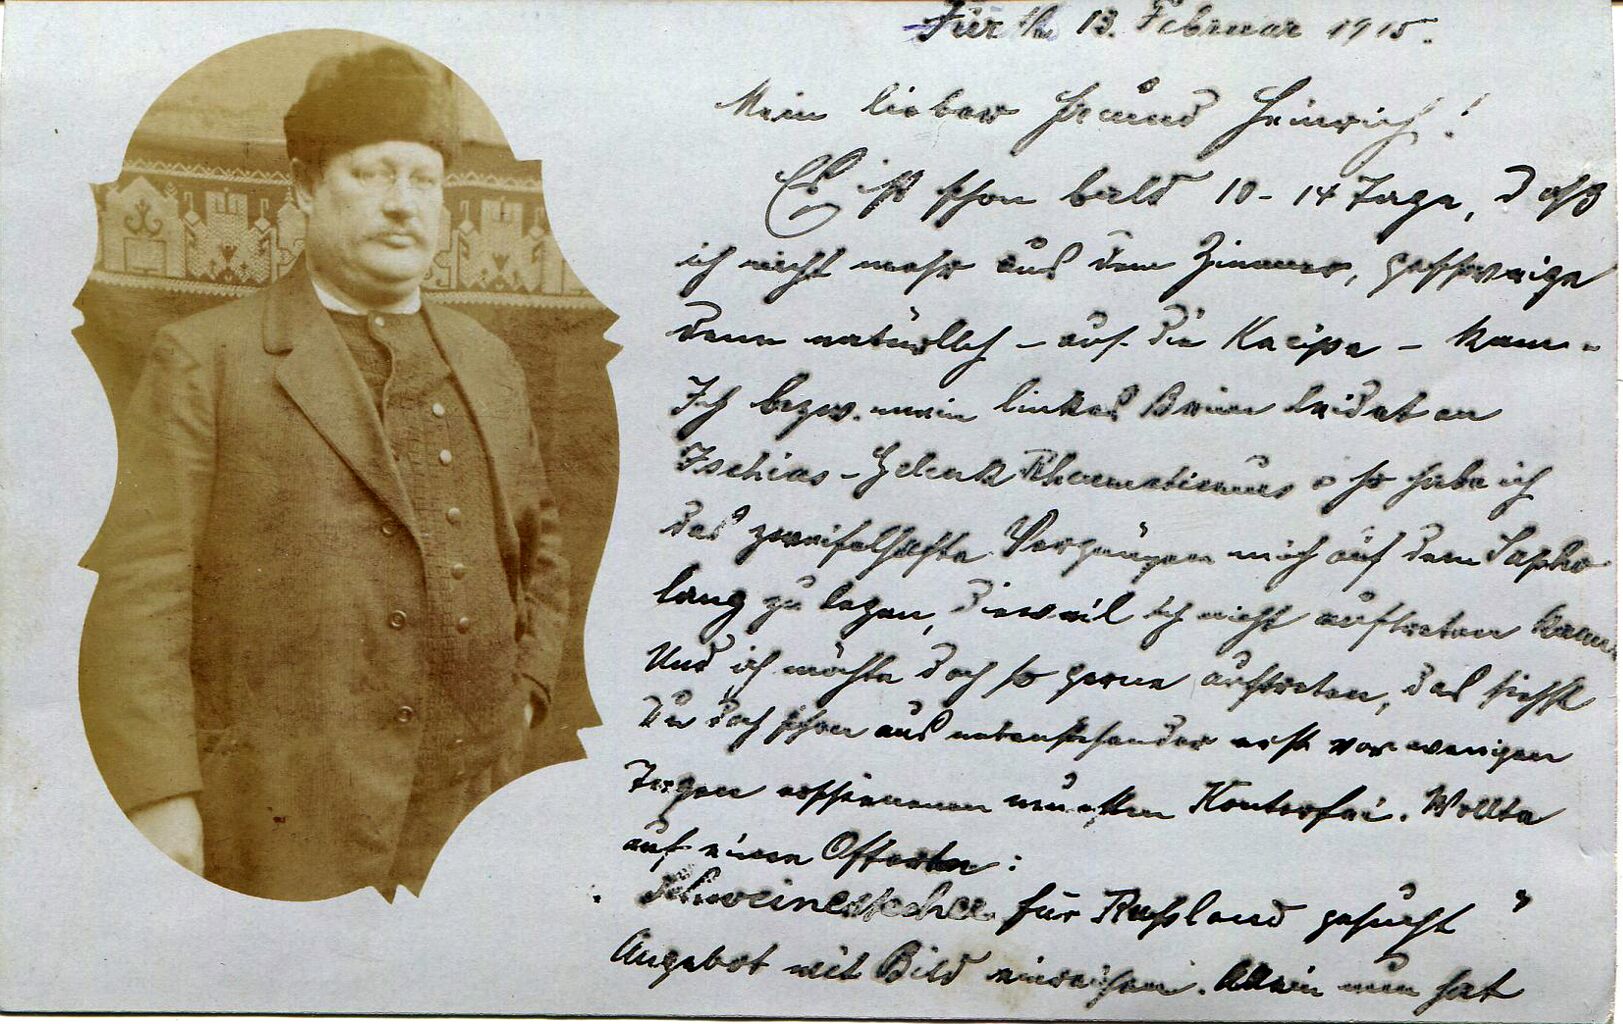 Fürth 13. Februar 1915.
Mein lieber Freund Heinrich!
Es ist schon bald 10-14 Tage, daß
ich nicht mehr aus dem Zimmer, geschweige
denn natürlich - auf die Kneipe - kam.
Ich bezw. mein linkes Bein leidet an
Ischias-Gelenk Rheumatismus u so habe ich
das zweifelhafte Vergnügen mich auf dem Sopha
lang zu legen, dieweil ich nicht auftreten kann.
Und ich möchte doch so gerne auftreten, das siehst
Du doch schon aus nebenstehender erst vor wenigen
Tagen erschienenen neuesten Konterfei. Wollte
auf einen Offerten:
für Rußland gesucht"
Angebot mit Bild einreichen. Allein nun hat